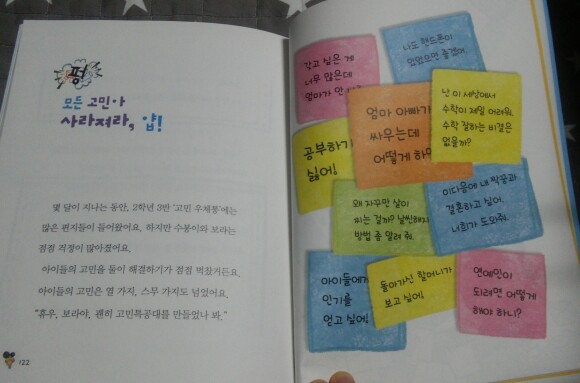 펑
모든 고민아
사라져라, 얍!
몇 달이 지나는 동안, 2학년 3반 '고민 우체통'에는
많은 편지들이 들어왔어요. 하지만 수봉이와 보라는
점점 걱정이 많아졌어요.
아이들의 고민을 둘이 해결하기가 점점 벅찼거든요.
아이들의 고민은 열 가지, 스무 가지도 넘었어요.
"휴우, 보라야, 괜히 고민특공대를 만들었나 봐."
122
갖고 싶은 게
너무 많은데
엄마가 안
나도 핸드폰이
있었으면 좋겠어.
엄마 아빠가
싸우는데
어떻게 하
난 이 세상에서
수학이 제일 어려워.
수학 잘하는 비결은
없을까?
공부하기
싫어!
왜 자꾸만 살이
찌는 걸까? 날씬해지
방법 좀 알려 줘.
이다음에 내 짝꿍과
결혼하고 싶어.
너희가 도와줘.
아이들에게
인기를
얻고 싶어!
돌아가신 할머니가
보고 싶어!
연예인이
되려면 어떻게
해야 하니?